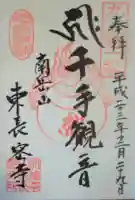 奉拝
平成二十三年十二月二十九日
千手観音
南岳山
東長密寺